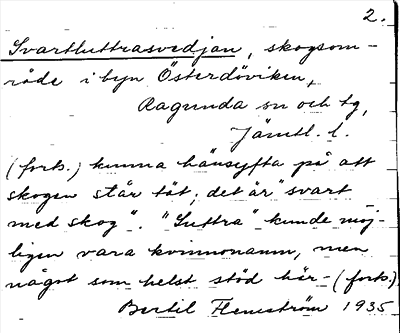 2.
Svartluttrasvedjan, skogsom-
råde i byn Österdöviken,
Ragunda sn och tg,
Jämtl. l.
(forts.) kunna hänsyfta på att
skogen står tät; det är "svart
med skog". "Luttra" kunde möj-
ligen vara kvinnonamn, men
något som helst stöd här- (forts.)
Bertil Flemström 1935